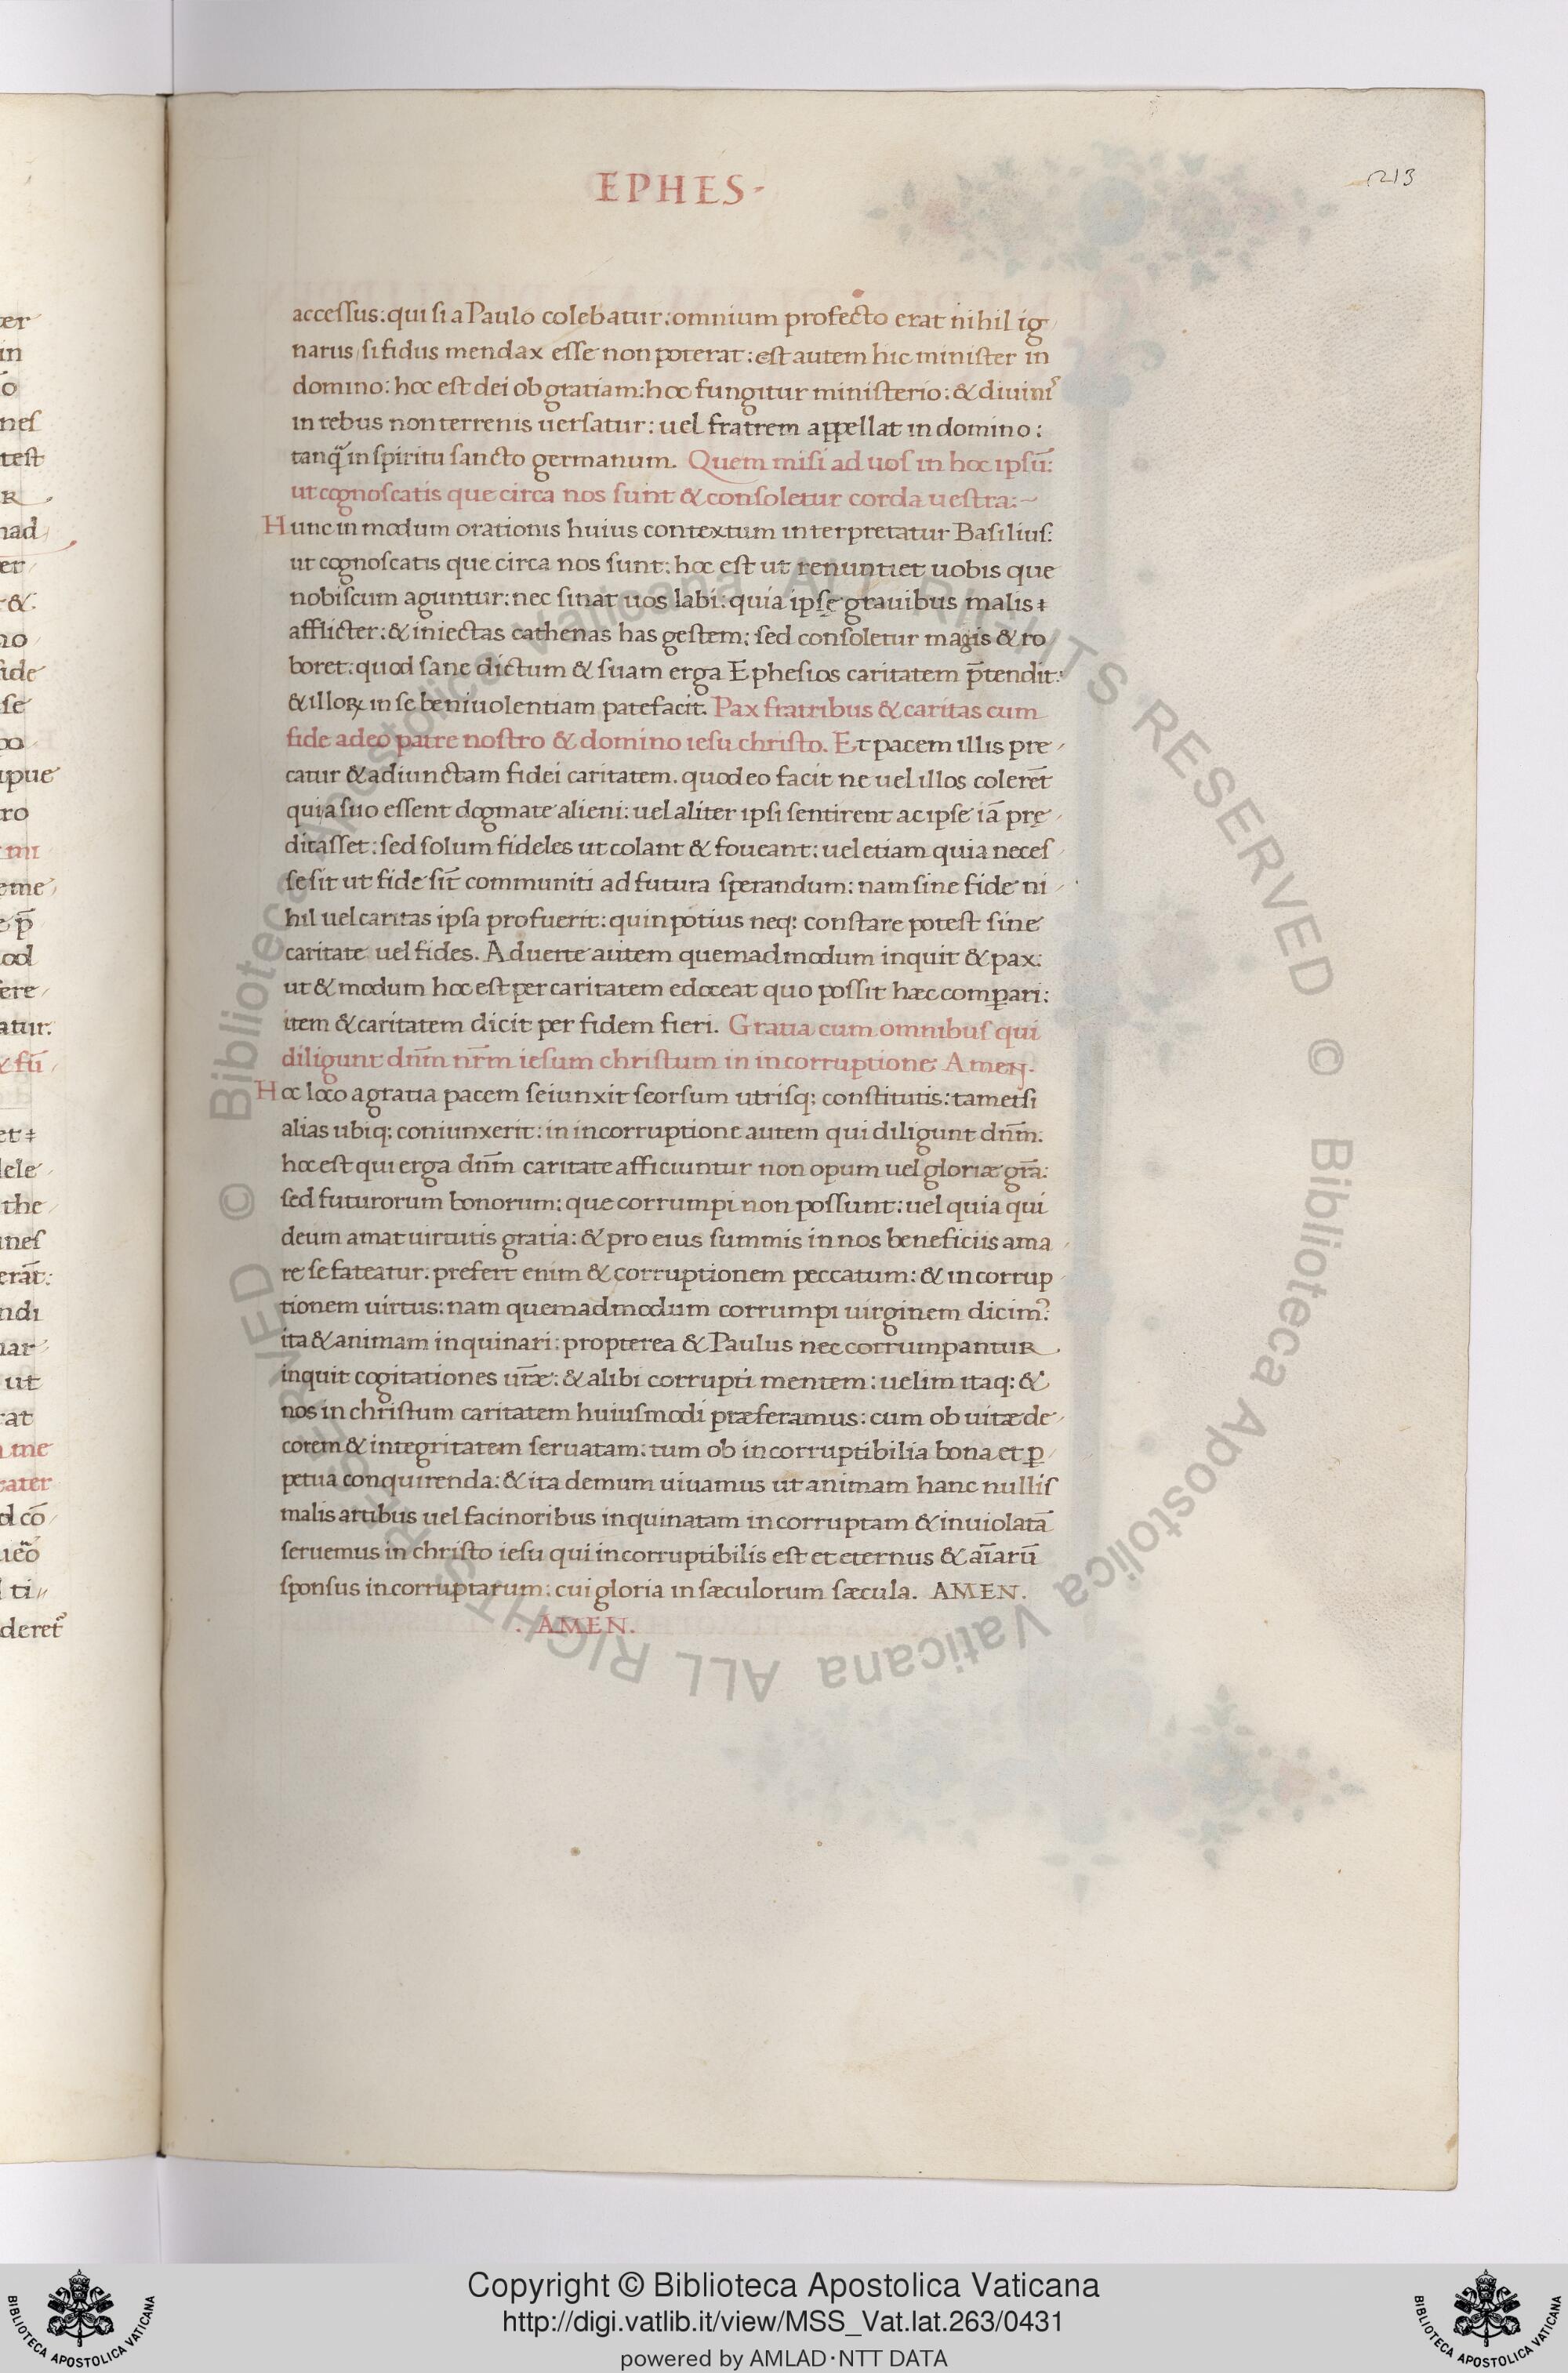 EPHES·
213
accessus: qui si a Paulo colebatur: omnium profecto erat nihil ig
narus, si fidus mendax esse non poterat: est autem hic minister in
domino: hoc est dei ob gratiam: hoc fungitur ministerio: & diuinis
in rebus non terrenis uersatur: uel fratrem appellat in domino:
tanq̃ in spiritu sancto germanum. Quem misi ad uos in hoc ipsū:
ut cognoscatis que circa nos sunt & consoletur corda uestra:~
Hunc in modum orationis huius contextum interpretatur Basilius:
ut cognoscatis que circa nos sunt: hoc est ut renuntiet uobis que
nobiscum aguntur: nec sinat uos labi: quia ipse grauibus malis
afflicter: & iniectas cathenas has gestem: sed consoletur magis & ro
boret: quod sane dictum & suam erga Ephesios caritatem p̄tendit:
& illoꝝ in se beniuolentiam patefacit. Pax fratribus & caritas cum
fide a deo patre nostro & domino iesu christo. Et pacem illis pre
catur & adiunctam fidei caritatem. quod eo facit ne uel illos colerēt
quia suo essent dogmate alieni: uel aliter ipsi sentirent ac ipse iā prę
dicasset: sed solum fideles ut colant & foueant: uel etiam quia neces
se sit ut fide sīt communiti ad futura sperandum: nam sine fide ni
hil uel caritas ipsa profuerit: quin potius neq; constare potest sine
caritate uel fides. Aduerte autem quemadmodum inquit & pax:
ut & modum hoc est per caritatem edoceat quo possit hæc comꝑari:
item & caritatem dicit per fidem fieri. Gratia cum omnibus qui
diligunt dn̄m nr̄m iesum christum in incorruptione. Amen.
Hoc loco a gratia pacem seiunxit seorsum utrisq; constitutis: tametsi
alias ubiq; coniunxerit: in incorruptione autem qui diligunt dn̄m.
hoc est qui erga dn̄m caritate afficiuntur non opum uel gloriæ gr̄a:
sed futurorum bonorum: que corrumpi non possunt: uel quia qui
deum amat uirtutis gratia: & pro eius summis in nos beneficiis ama
re se fateatur. prefert enim & corruptionem peccatum: & incorrup
tionem uirtus: nam quemadmodum corrumpi uirginem dicimꝰ:
ita & animam inquinari: propterea & Paulus nec corrumpantur
inquit cogitationes ur̄æ: & alibi corrupti mentem: uelim itaq: &
nos in christum caritatem huiusmodi præferamus: cum ob uitæ de
corem & integritatem seruatam: tum ob incorruptibilia bona et ꝑ
petua conquirenda: & ita demum uiuamus ut animam hanc nullis
malis artibus uel facinoribus inquinatam incorruptam & inuiolatā
seruemus in christo iesu qui incorruptibilis est et eternus & aīarū
sponsus incorruptarum: cui gloria in sæculorum sæcula. AMEN.
. AMEN.
© Biblioteca Apostolica Vaticana ALL RIGHTS RESERVED © Biblioteca Apostolica Vaticana ALL RIGHTS RESERVED
Copyright © Biblioteca Apostolica Vaticana
http://digi.vatlib.it/view/MSS_Vat.lat.263/0431
powered by AMLAD·NTT DATA
BIBLIOTECA APOSTOLICA VATICANA
BIBLIOTECA APOSTOLICA VATICANA